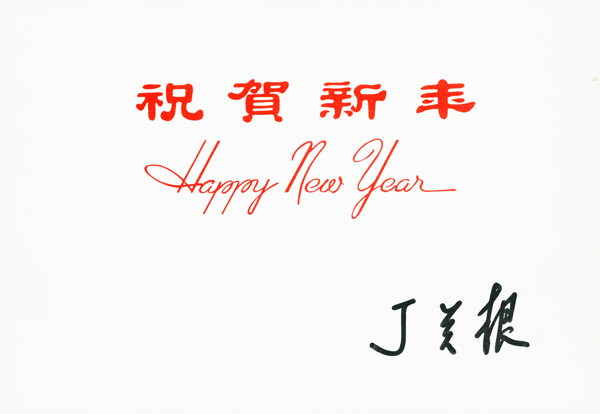 祝賀新年
Happy New Year
丁关根